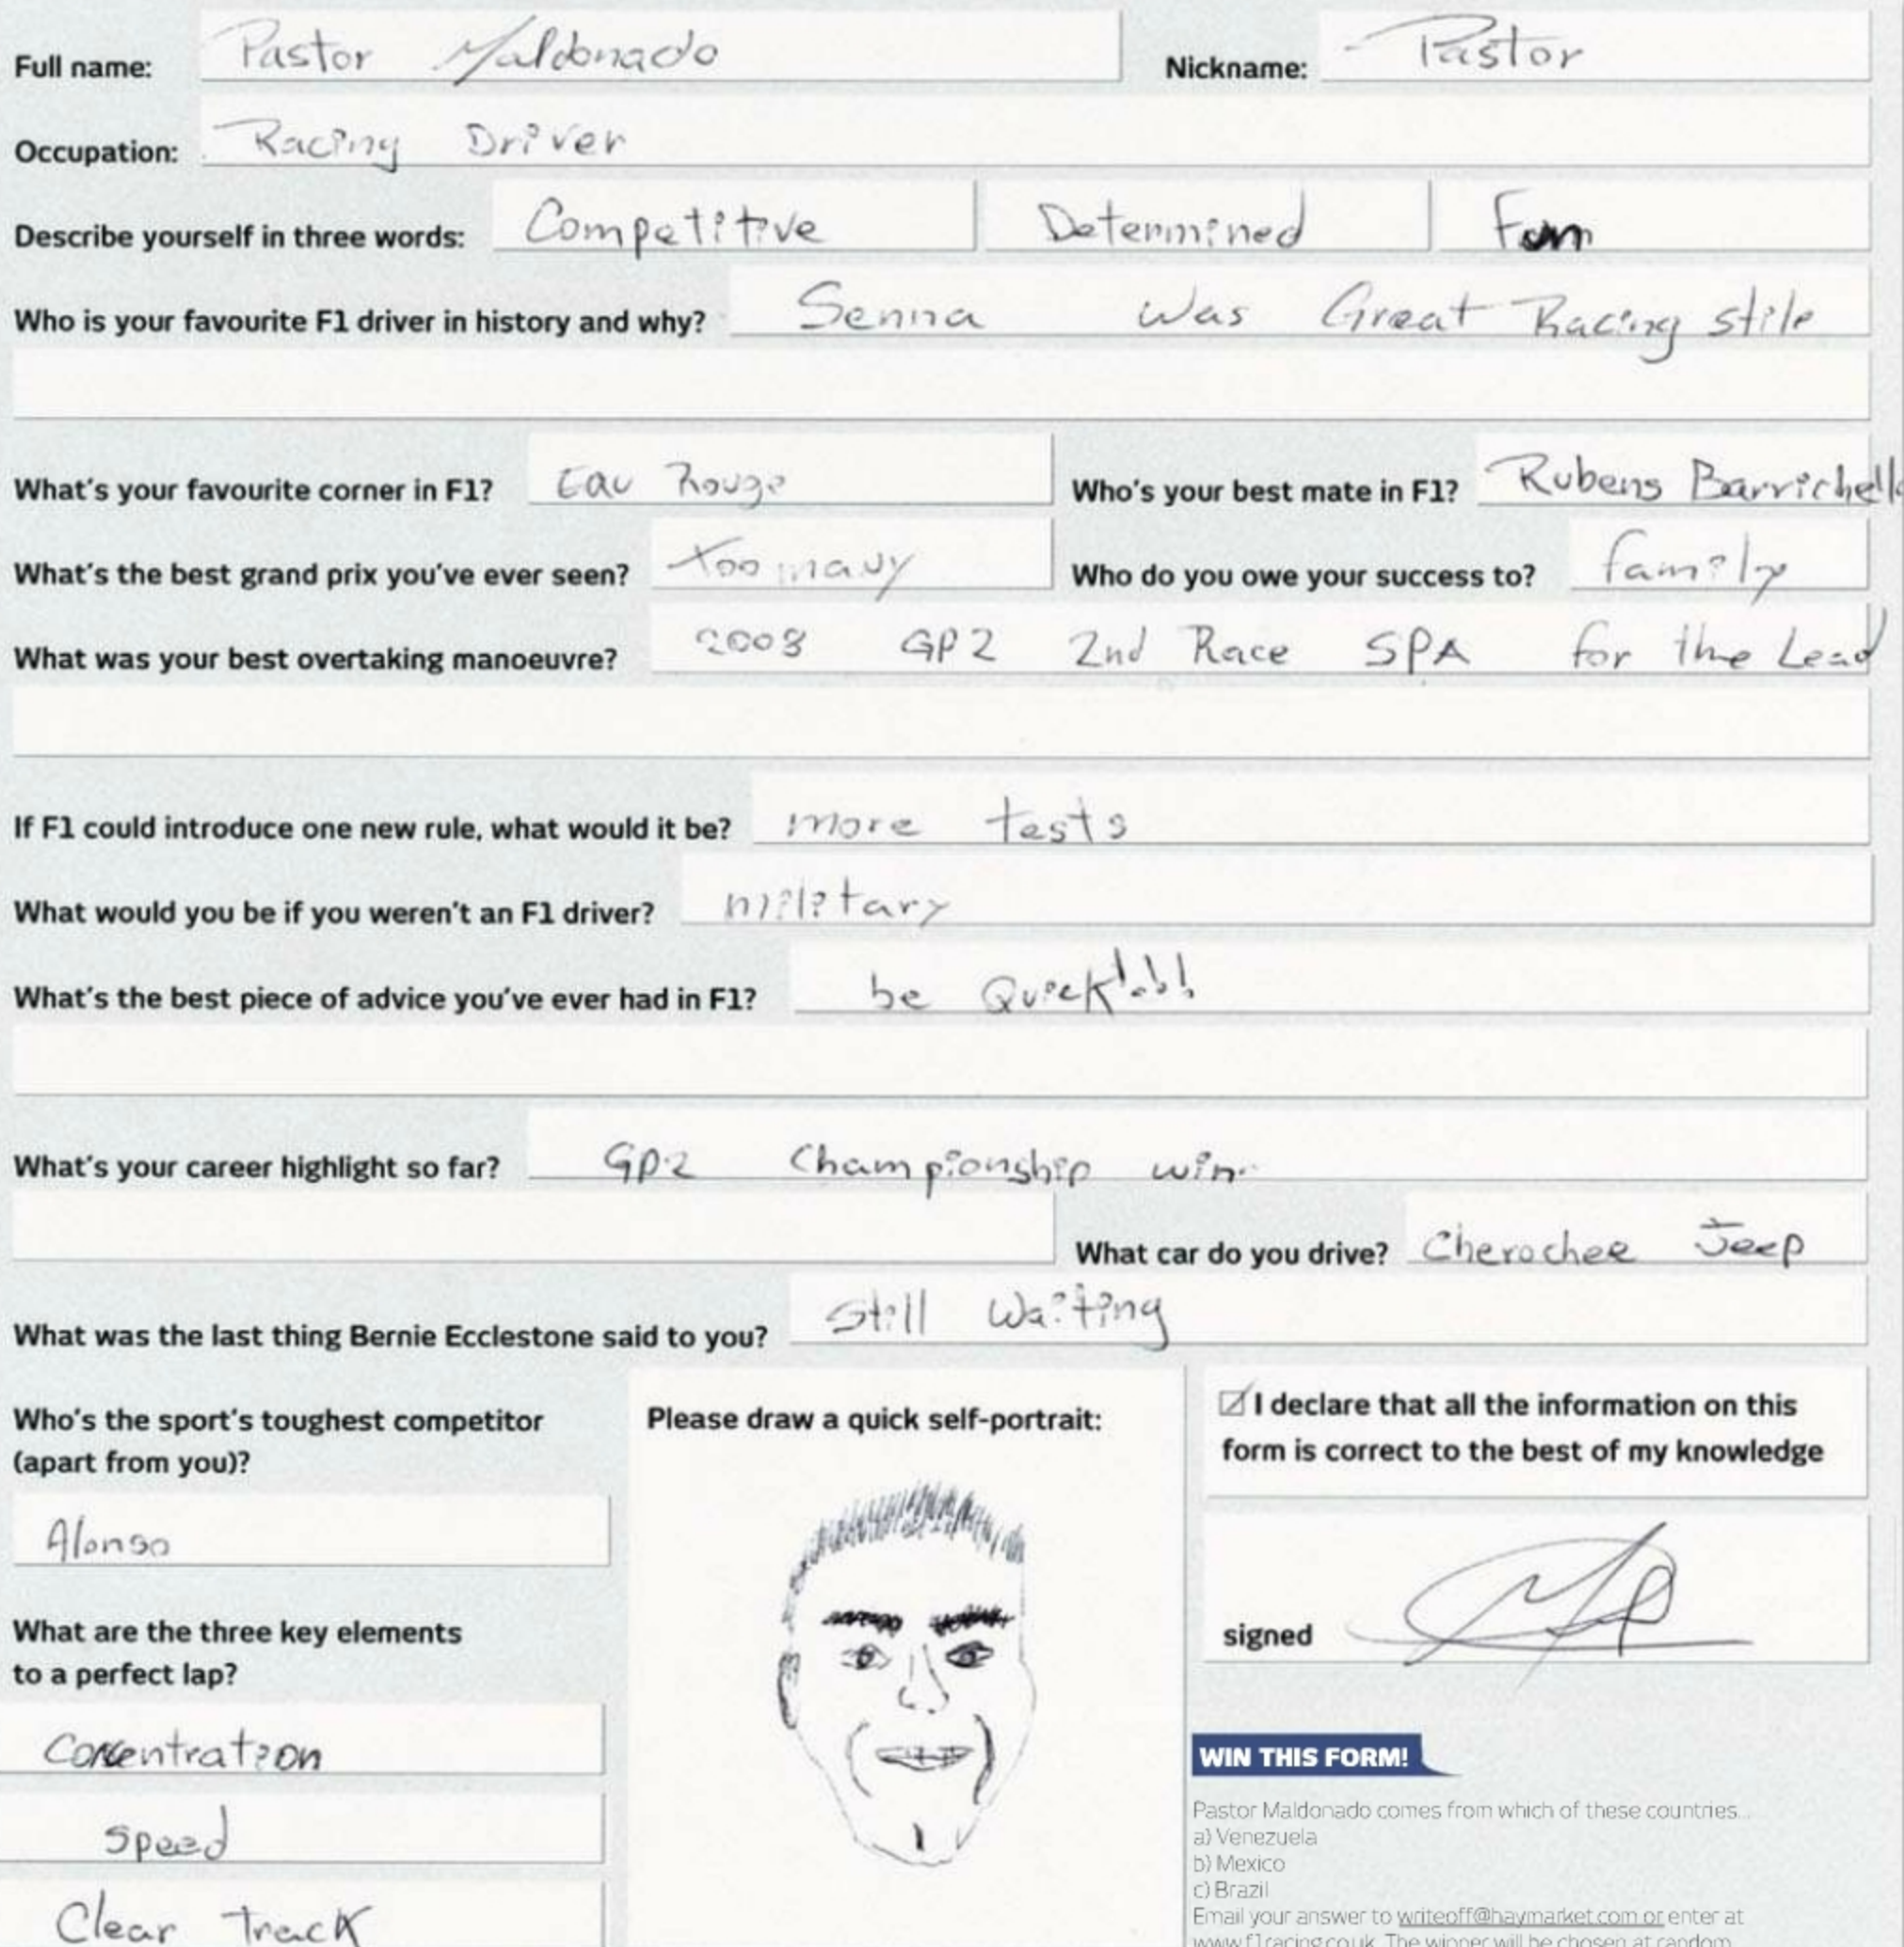 Full name: Pastor Maldonado Nickname: Pastor
Occupation: Racing Driver
Describe yourself in three words: Competitive Determined Fun
Who is your favourite F1 driver in history and why? Senna Was Great Racing stile
What's your favourite corner in F1? Eau Rouge Who's your best mate in F1? Rubens Barrichello
What's the best grand prix you've ever seen? too many Who do you owe your success to? family
What was your best overtaking manoeuvre? 2008 GP2 2nd Race SPA for the Lead
If F1 could introduce one new rule, what would it be? more tests
What would you be if you weren't an F1 driver? military
What's the best piece of advice you've ever had in F1? be Quick!!!
What's your career highlight so far? GP2 Championship win
What car do you drive? Cherochee Jeep
What was the last thing Bernie Ecclestone said to you? Still Waiting
Who's the sport's toughest competitor
(apart from you)?
Alonso
What are the three key elements
to a perfect lap?
Concentration
Speed
Clear Track
Please draw a quick self-portrait:
I declare that all the information on this
form is correct to the best of my knowledge
signed
WIN THIS FORM!
Pastor Maldonado comes from which of these countries...
a) Venezuela
b) Mexico
c) Brazil
Email your answer to writeoff@haymarket.com or enter at
www.f1racing.co.uk. The winner will be chosen at random